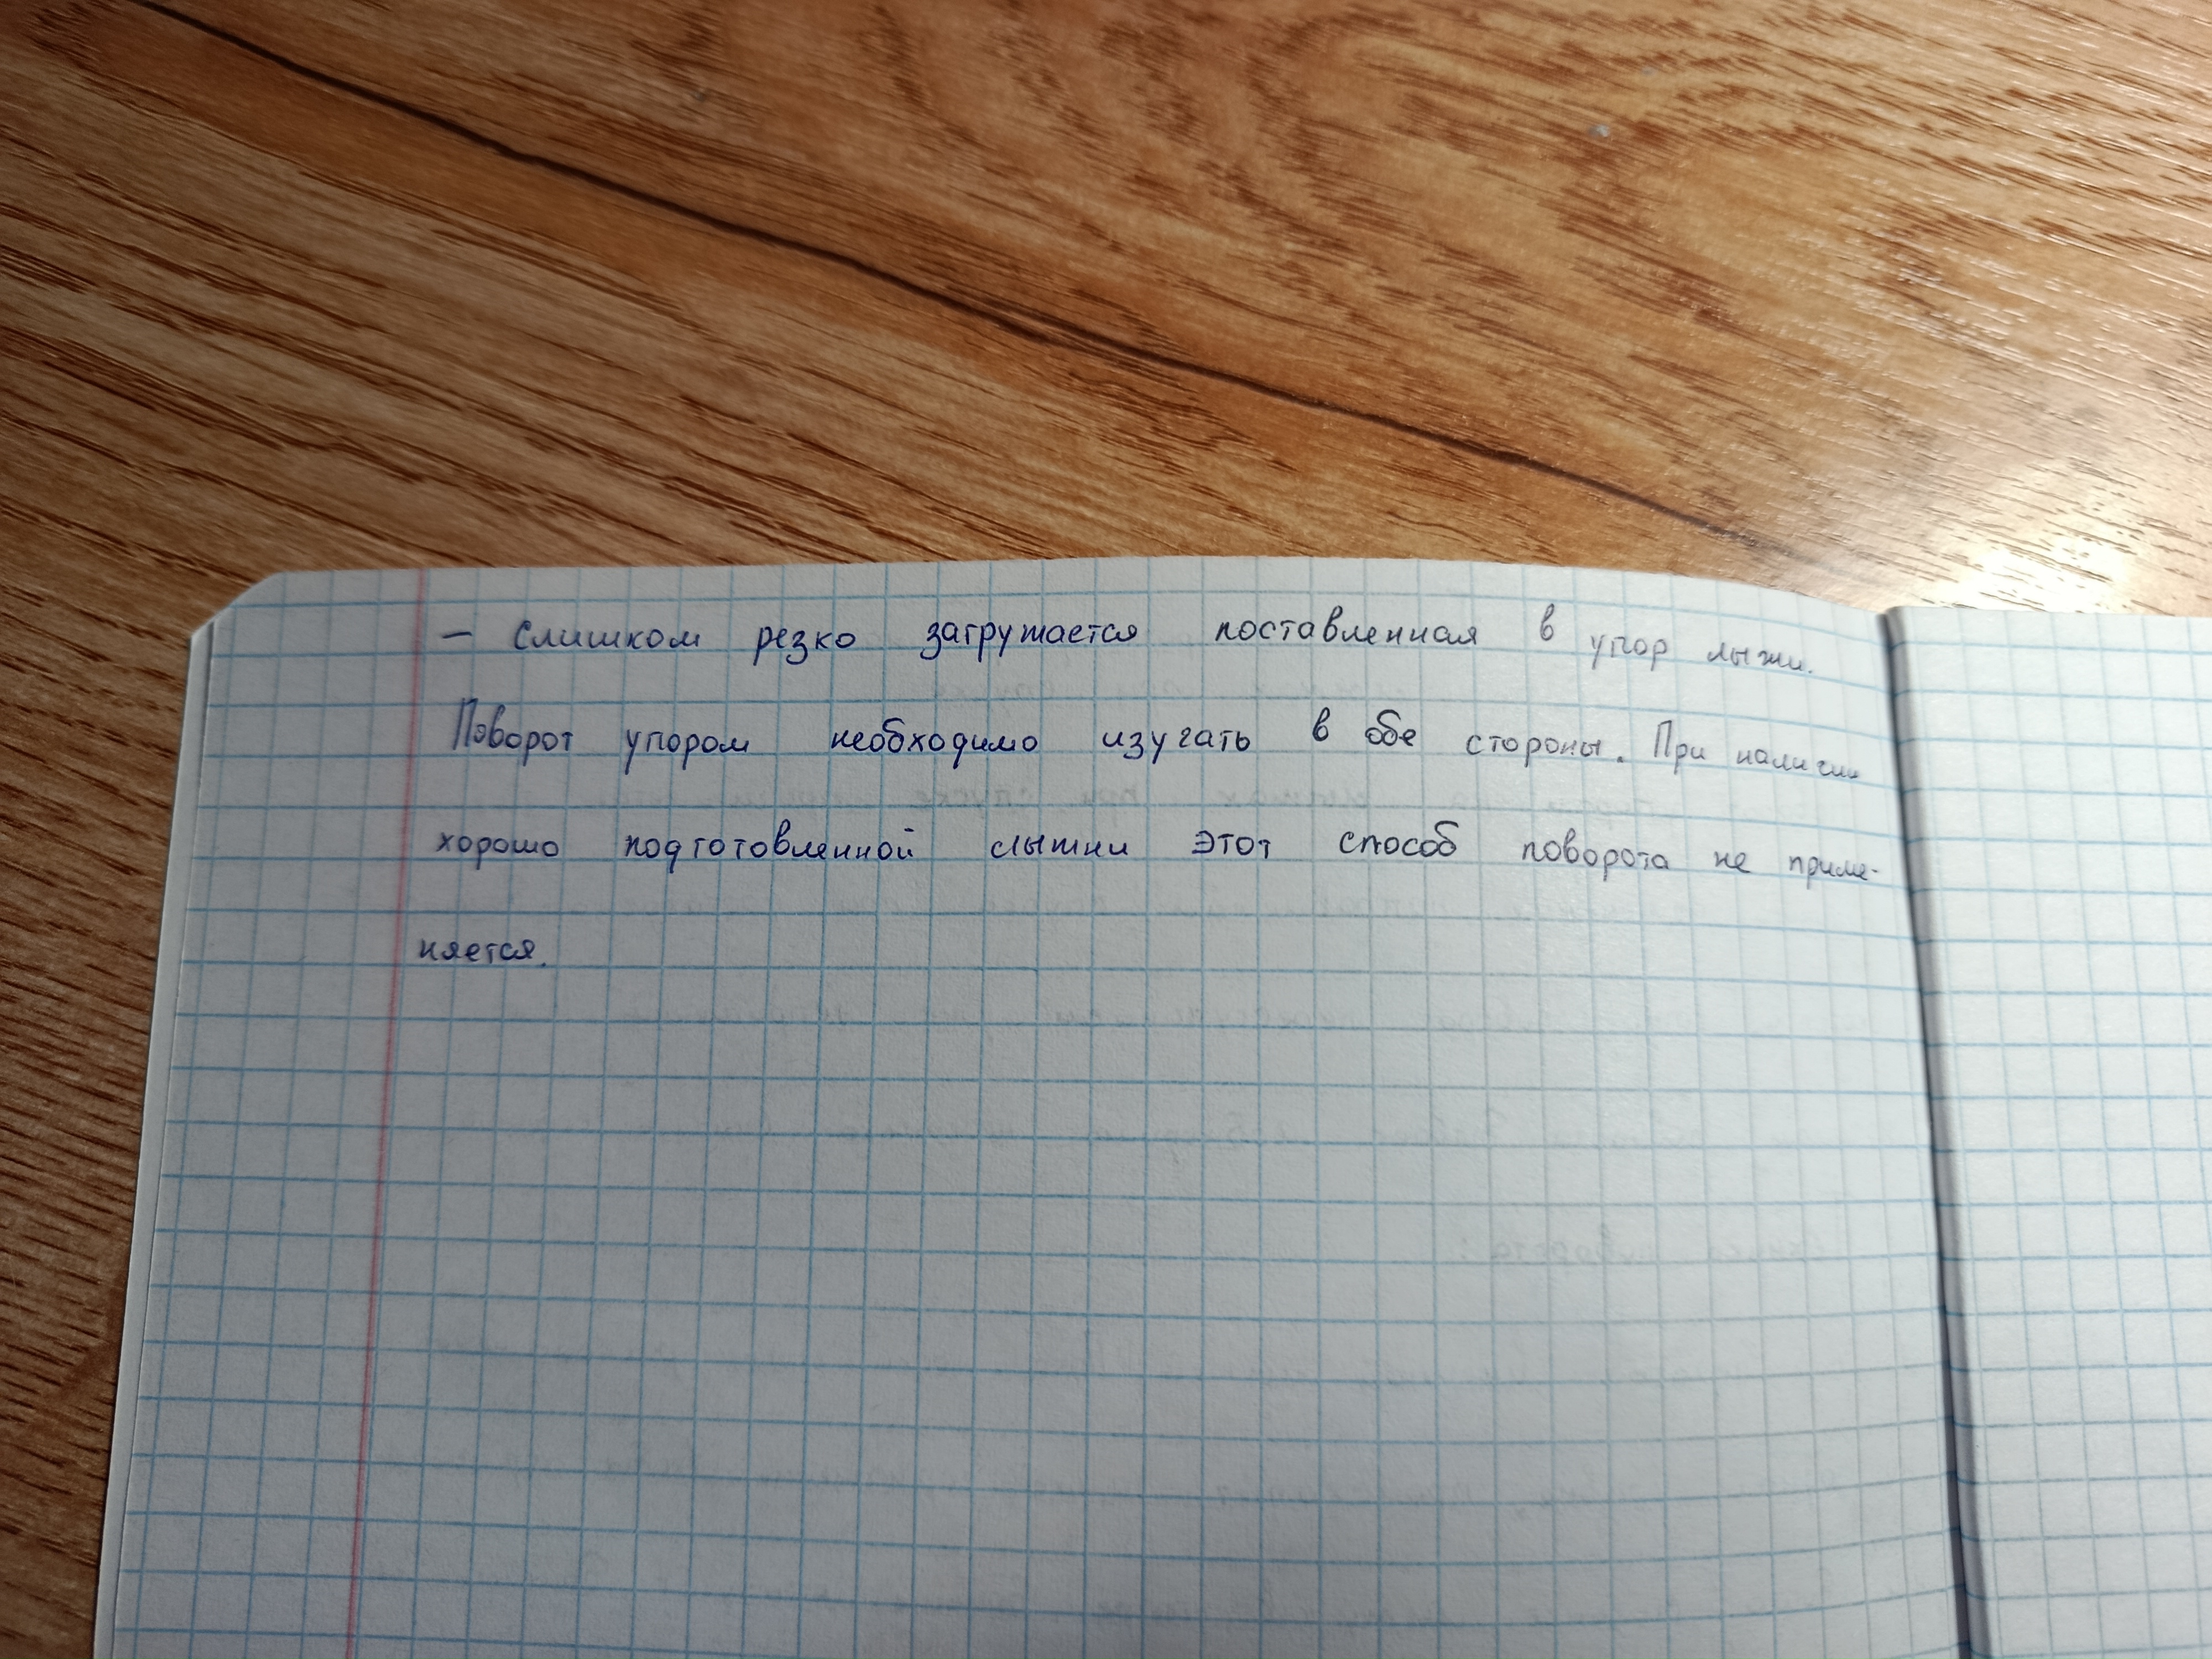 — слишком резко загружается поставленная в упор лыжи.
Поворот упором необходимо изучать в обе стороны. При наличии
хорошо подготовленной лыжни этот способ поворота не приме-
няется.